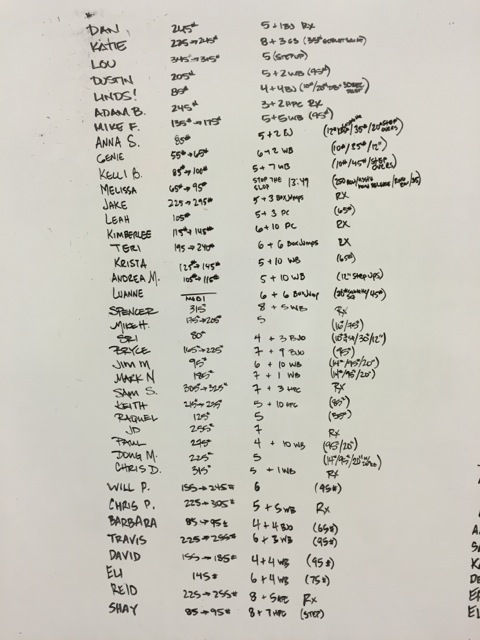 DAN 245# 5 + 1BJ RX
KATIE 225→245# 8 + 3 GS (35# GOBLET SQUAT)
LOU 345→365# 5 (STEPUP)
DUSTIN 205# 5 + 2 WB (95#)
LINDS! 85# 4 + 4BJ
ADAM B. 245# 3 + 2 HPC RX
MIKE F. 135#→175# 5 + 5 WB (95#)
ANNA S. 85# 5 + 2 BJ
GENIE 55#→65# 6 + 2 WB (10#/35#/12")
KELLI B. 85#→100# 5 + 7 WB (10#/45#/STEP OVERS)
MELISSA 65#→95# STOP THE SLOP 13:49
JAKE 225→295# 5 + 3 BOX JUMPS RX
LEAH 105# 5 + 3 PC (65#)
KIMBERLEE 115#→145# 6 + 10 PC RX
TERI 195→240# 6 + 6 BOX JUMPS RX
KRISTA 125#→145# 5 + 10 WB (65#)
ANDREA M. 105#→115# 5 + 10 WB (12" STEP UPS)
LUANNE MOBI 6 + 6 BOX JUMP
SPENCER 315# 8 + 5 WB RX
MIKE H. 175#→205# 5 (16#/75#)
SRI 80# 4 + 3 BJO
BRYCE 165#→225# 7 + 9 BJO (95#)
JIM M 95# 6 + 10 WB (14#/95#/20")
MARK N 185# 7 + 1 WB (14#/95#/20")
SAM S. 305#→325# 7 + 3 HPC RX
KEITH 215#→255# 5 + 10 HPC (85#)
RAQUEL 125# 5 (55#)
JD 255# 7 RX
PAUL 275# 4 + 10 WB (95#/20")
DOUG M. 225# 5
CHRIS D. 315# 5 + 1 WB RX
WILL P. 155→245# 6 (95#)
CHRIS P. 225→305# 5 + 5 WB RX
BARBARA 85→95# 4 + 4 BJO (65#)
TRAVIS 225→255# 6 + 3 WB (95#)
DAVID 155→185# 4 + 4 WB (95#)
ELI 145# 6 + 4 WB (75#)
REID 225→255# 8 + 5 HPC RX
SHAY 85→95# 8 + 7 HPC (STEP)